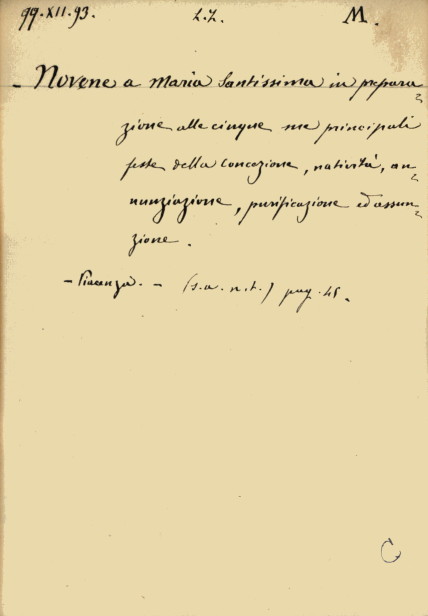 99.XII.93. L.Z. M.
- Novene a Maria Santissima in prepara
zione alle cinque sue principali
feste della Concezione, natività, an-
nunziazione, purificazione ed assun
zione.
- Piacenza. - (s.a.n.t.) pag. 45.
C